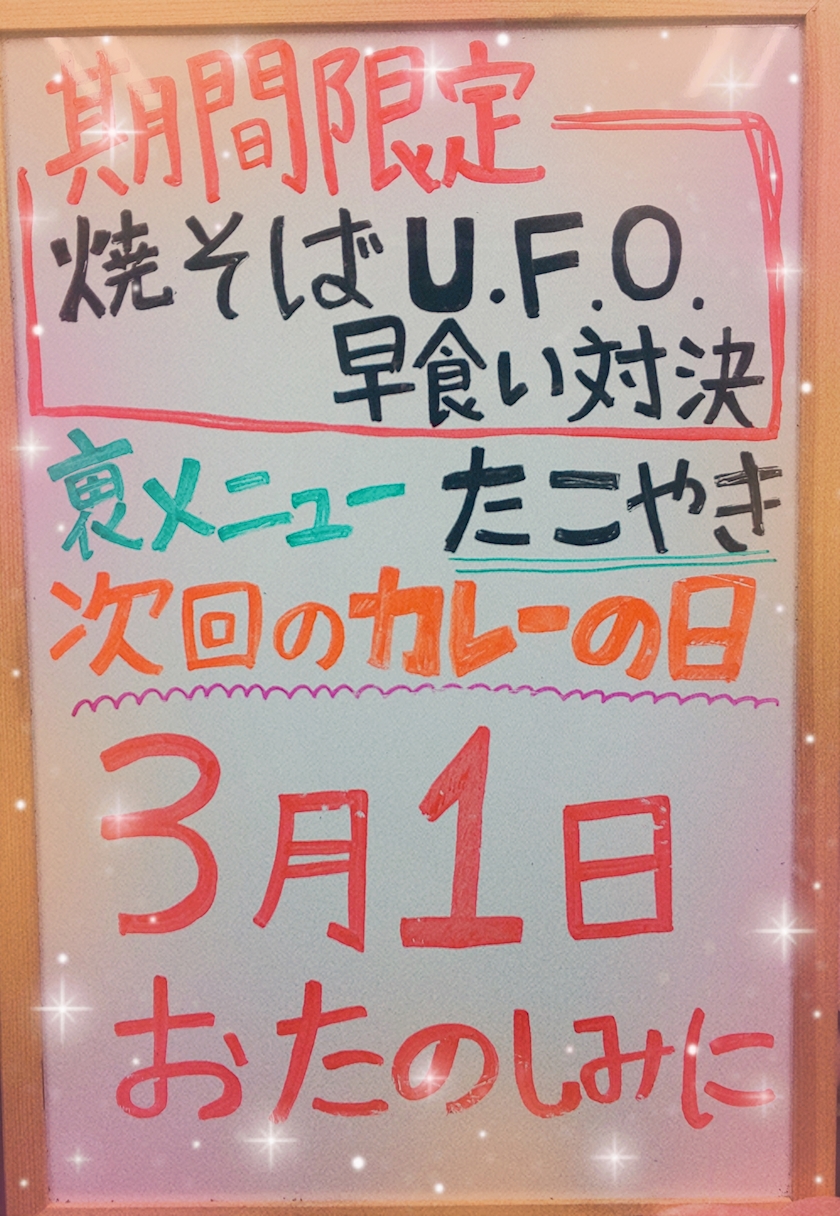 期間限定
焼そばU.F.O.
早食い対決
裏メニュー たこやき
次回のカレーの日
3月1日
おたのしみに